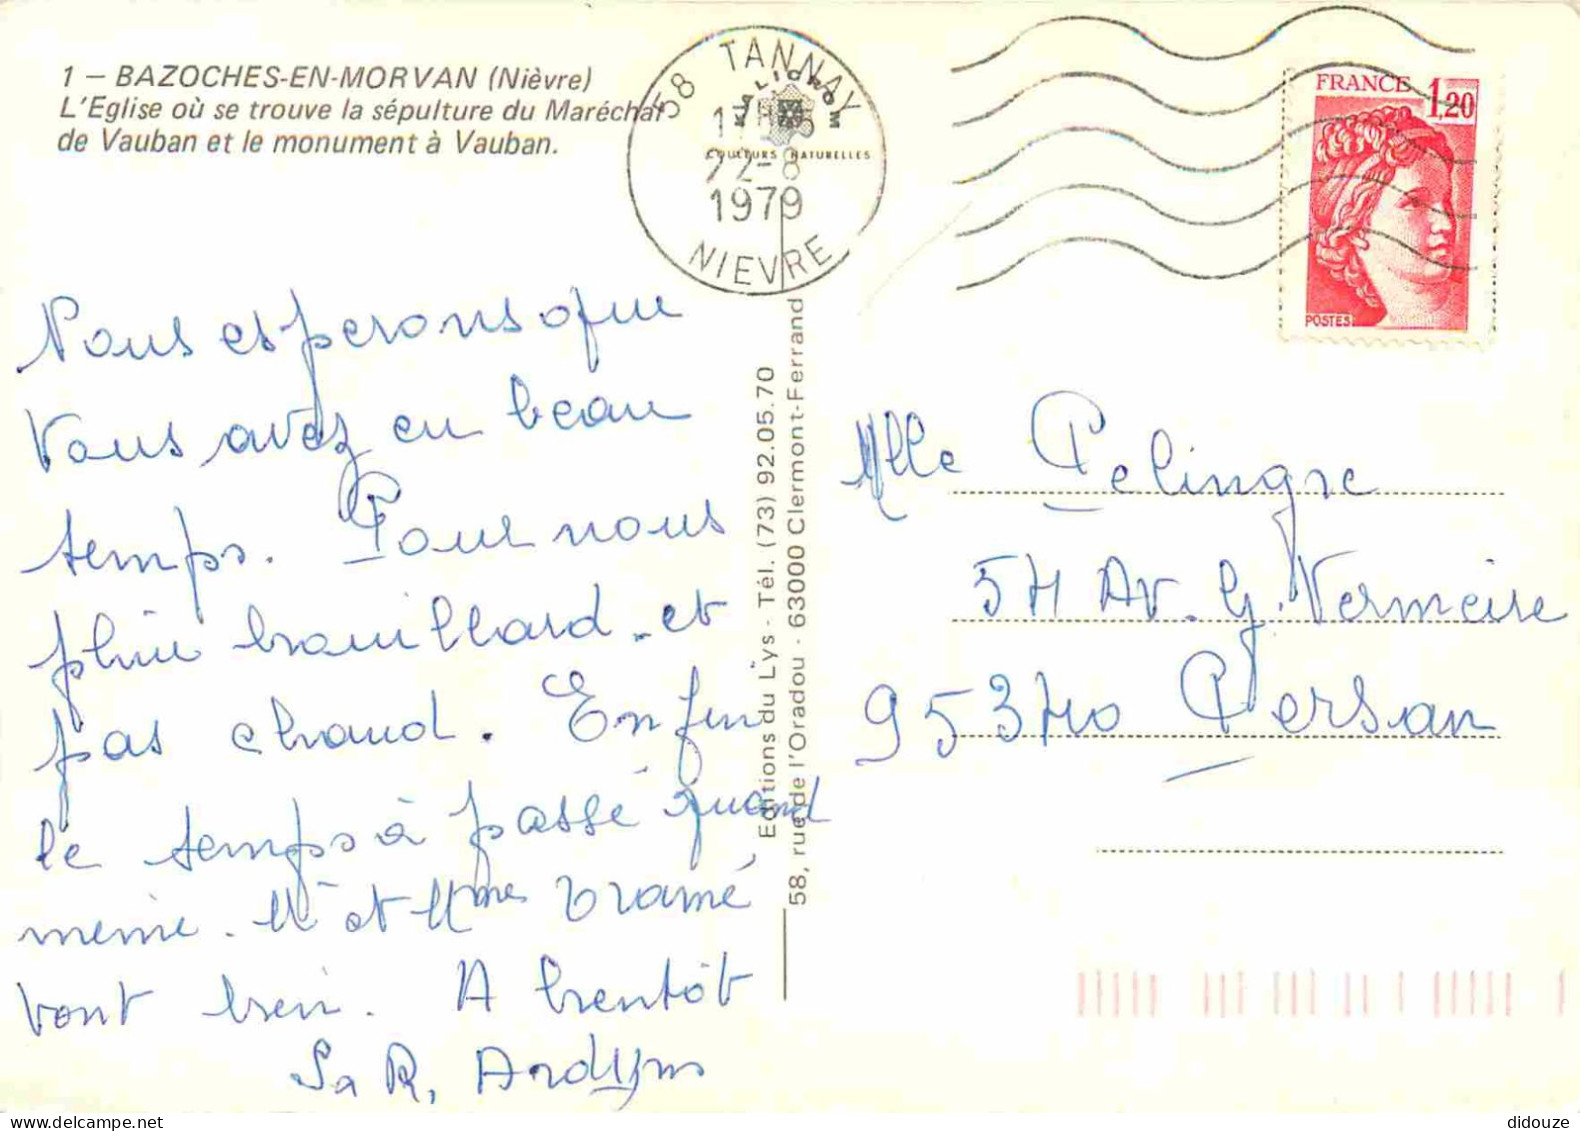 1 – BAZOCHES-EN-MORVAN (Nièvre)
L'Eglise où se trouve la sépulture du Maréchal
de Vauban et le monument à Vauban.
58 TANNAY
22-8
1979
NIEVRE
KALICROM
COULEURS NATURELLES
FRANCE 1,20
POSTES
Nous esperons que
vous avez eu beau
temps. Pour nous
pluie brouillard et
pas chaud. Enfin
le temps à passé quand
meme. Mr et Mmes Bramé
vont bien. A bientôt
Editions du Lys - Tél. (73) 92.05.70
58, rue de l'Oradou - 63000 Clermont-Ferrand
Mlle Pelingre
5H Av. G. Vermeire
95340 Persan
didouze